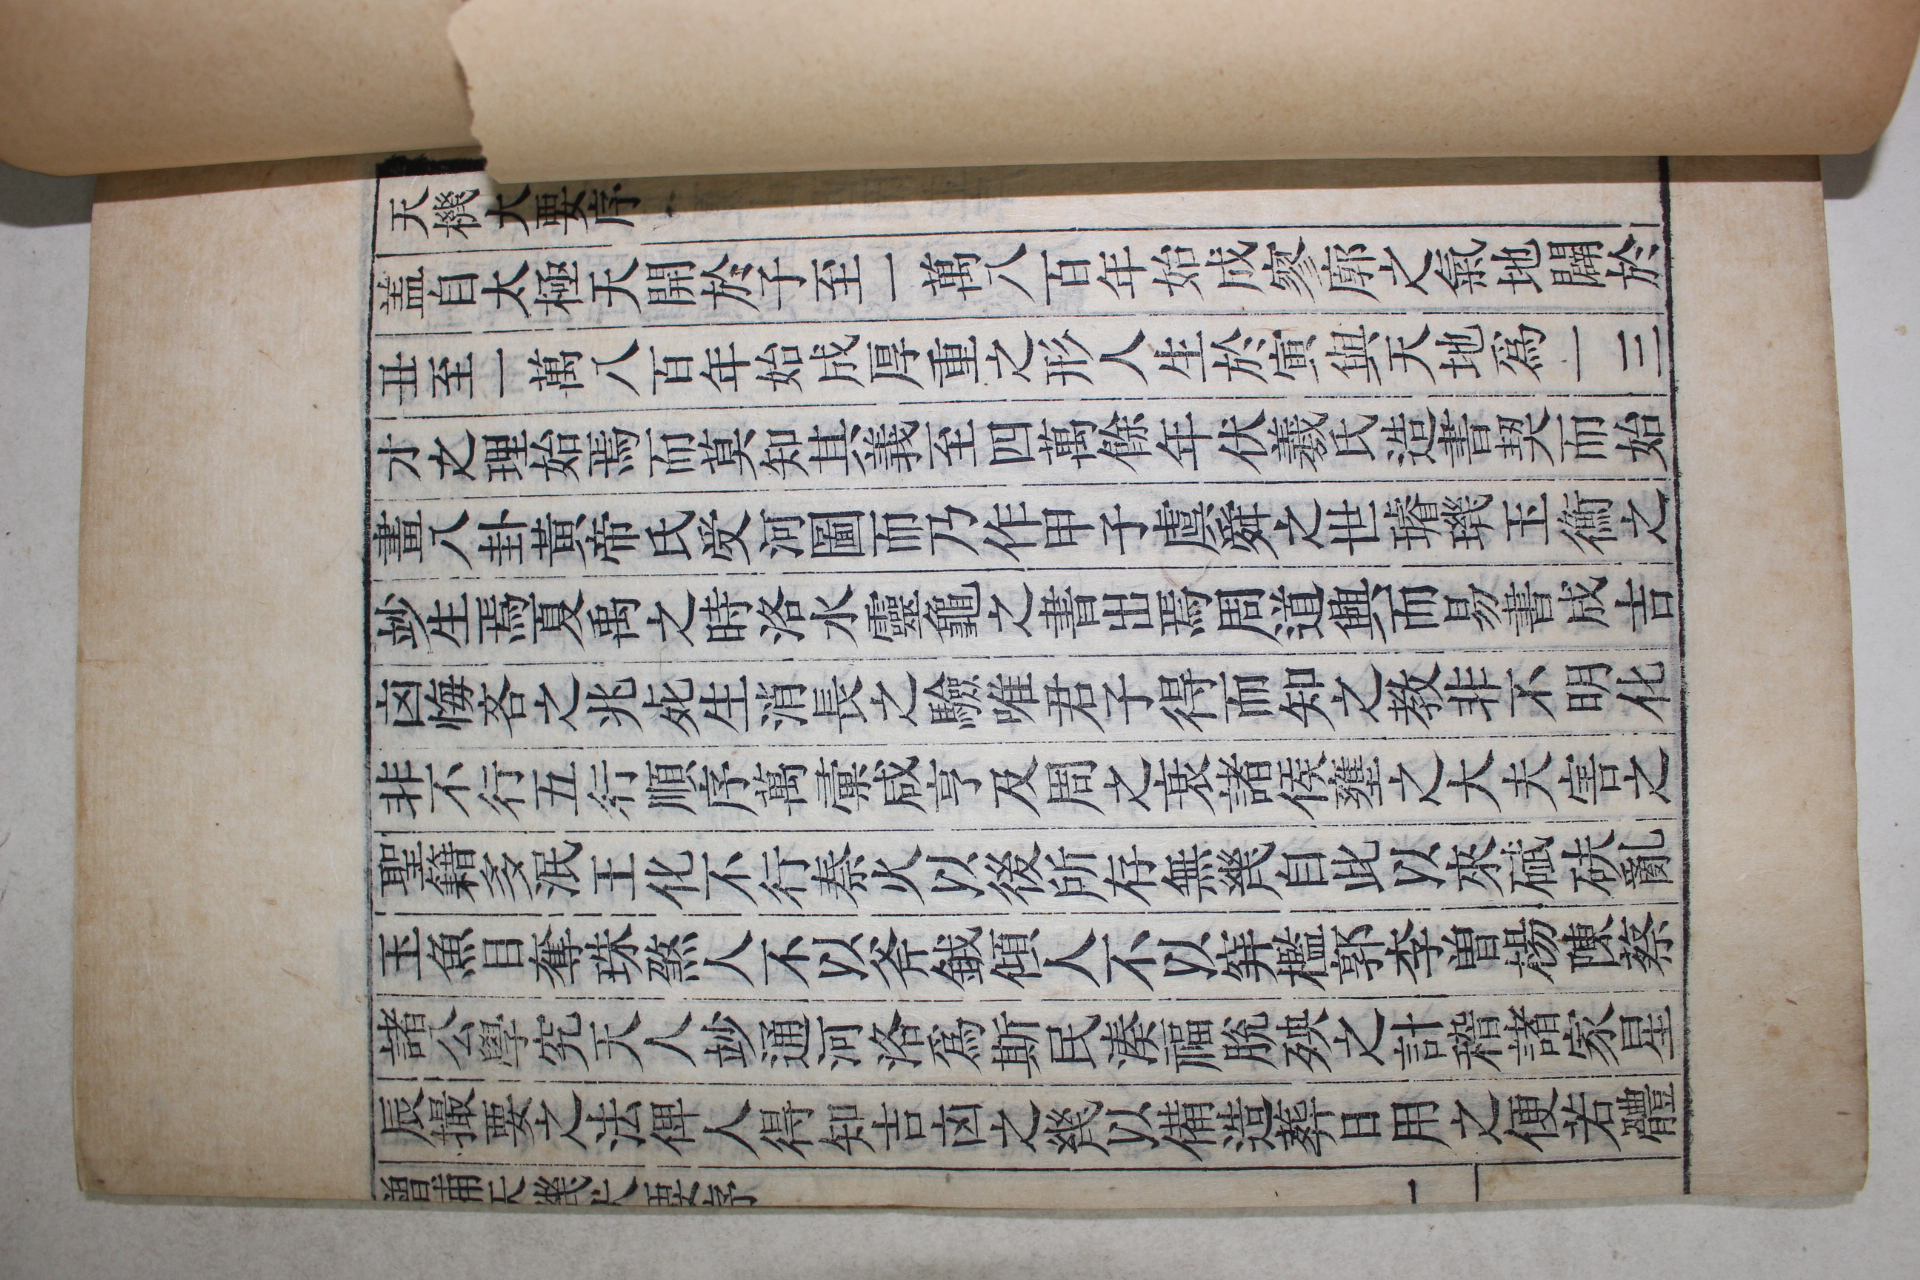 天機大要序
盖自太極天開於子至一萬八百年始成寥廓之氣地闢於
丑至一萬八百年始成厚重之形人生於寅與天地爲一三
才之理始焉而莫知其義至四萬餘年伏羲氏造書契而始
畫八卦黃帝氏受河圖而乃作甲子虞舜之世璿璣玉衡之
玅生焉夏禹之時洛水靈龜之書出焉周道興而易書成吉
凶悔吝之兆死生消長之驗唯君子得而知之教非不明化
非不行五行順序萬彙咸亨及周之衰諸侯壅之大夫害之
聖籍多泯王化不行秦火以後所存無幾自此以來碔砆亂
玉魚目奪珠煞人不以斧鉞傾人不以穽檻郭李曽楊陳蔡
諸公學究天人玅通河洛爲斯民湊福脫殃之計稽諸家星
辰撮要之法俾人得知吉凶之幾以備造葬日用之便若體
增補天機大要序
一